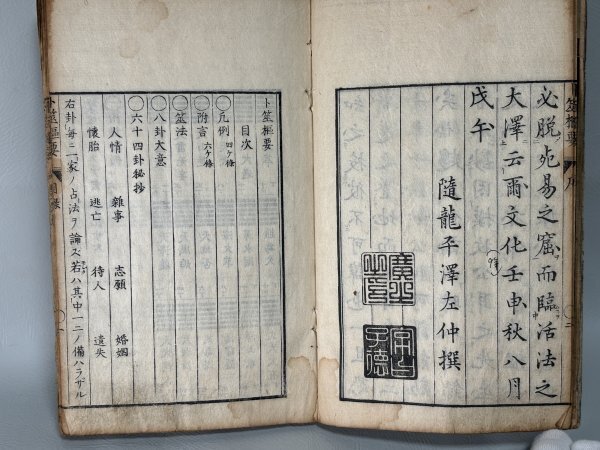 卜筮樞要 序
必脱宛易之窟而臨活法之
大澤云爾文化壬申秋八月
戊午
隨龍平澤左仲撰
卜筮樞要
目次
〇凡例 四ケ條
〇附言 六ケ條
〇筮法
〇八卦大意
〇六十四卦秘抄
人情 雜事 志願 婚姻
懷胎 逃亡 待人 遺失
右卦毎ニ一家ノ占法ヲ論ズ若ハ其中一二ノ備ハラザル
卜筮樞要 目次